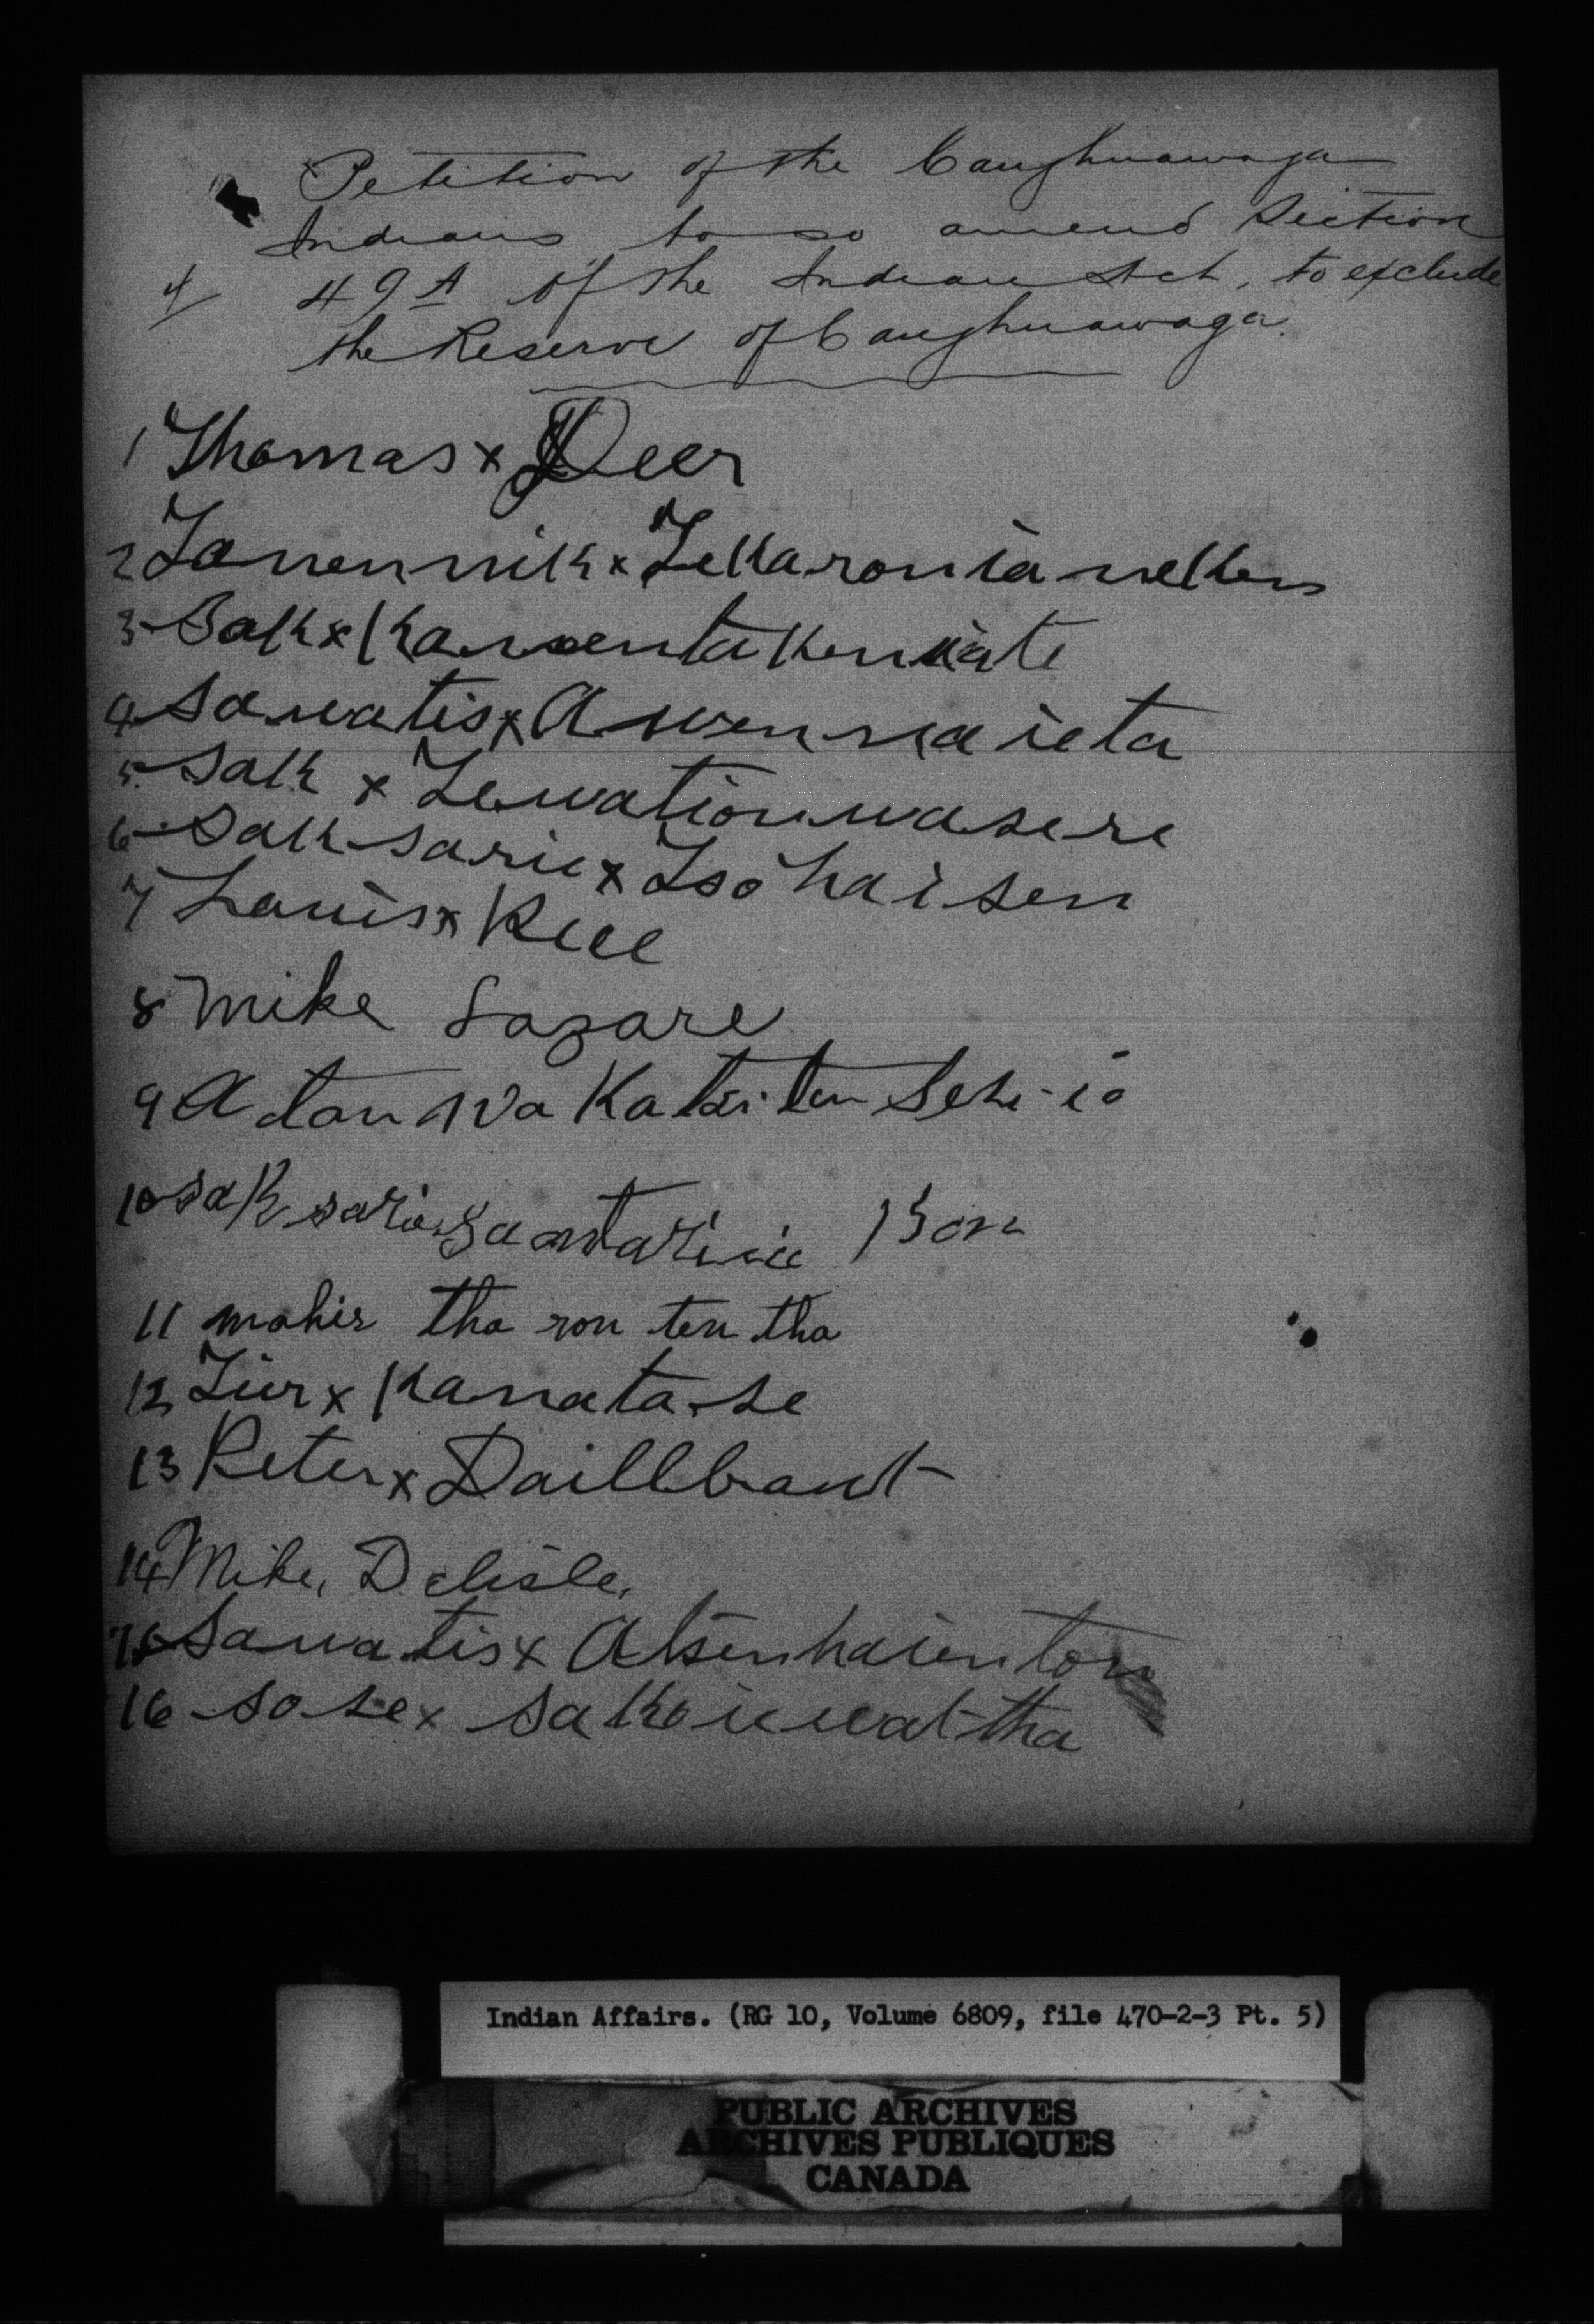 Petition of the Caughnawaga
Indians to so amend Section
4/ 49A of the Indian Act, to exclude
the Reserve of Caughnawaga.
1 Thomas x Deer
2 Tanennik x Tekaronianeken
3 Sak x Karoentakenniate
4 Sawatis x Awennaieta
5 Sak x Tewationwasere
6 Sak sarie x Tsohaisen
7 Louis x Rice
8 Mike Lazare
9 Atonwa Katsiten Seh-io
10 Sak sarie
11 mohir tha ron ten tha
12 Tier x Kanatase
13 Peter x Daillbout
14 Mike, Delisle,
15 Sawatis x Atsenhaienton
16 Sose x Sakoiewattha
Indian Affairs. (RG 10, Volume 6809, file 470-2-3 Pt. 5)
PUBLIC ARCHIVES
ARCHIVES PUBLIQUES
CANADA